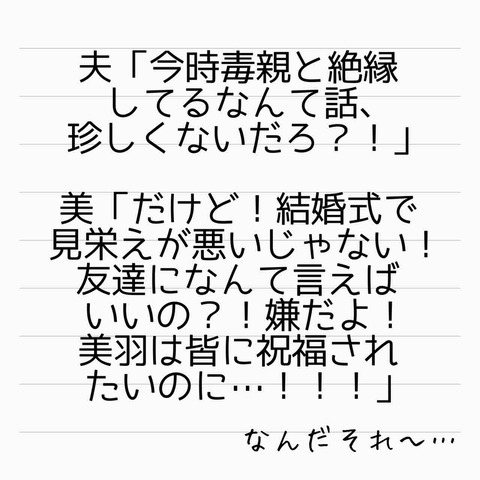 夫「今時毒親と絶縁
してるなんて話、
珍しくないだろ？！」
美「だけど！結婚式で
見栄えが悪いじゃない！
友達になんて言えば
いいの？！嫌だよ！
美羽は皆に祝福され
たいのに…！！！」
なんだそれ～…